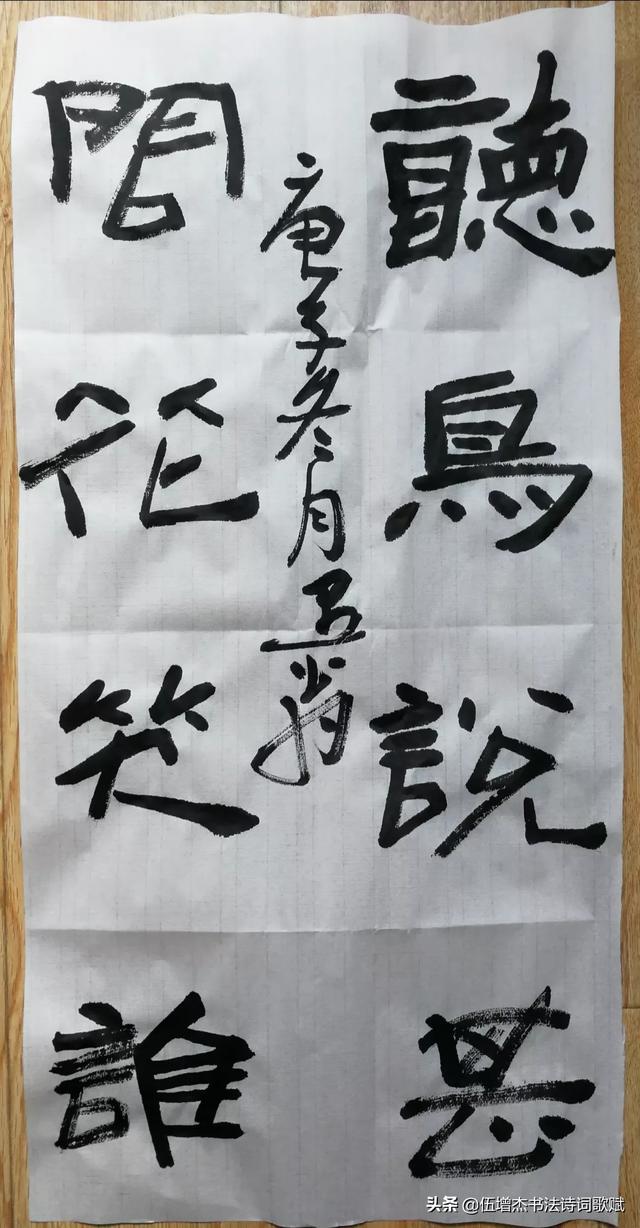 聽鳥說甚
庚子冬月 翁
問花笑誰
头条 @伍增杰书法诗词歌赋